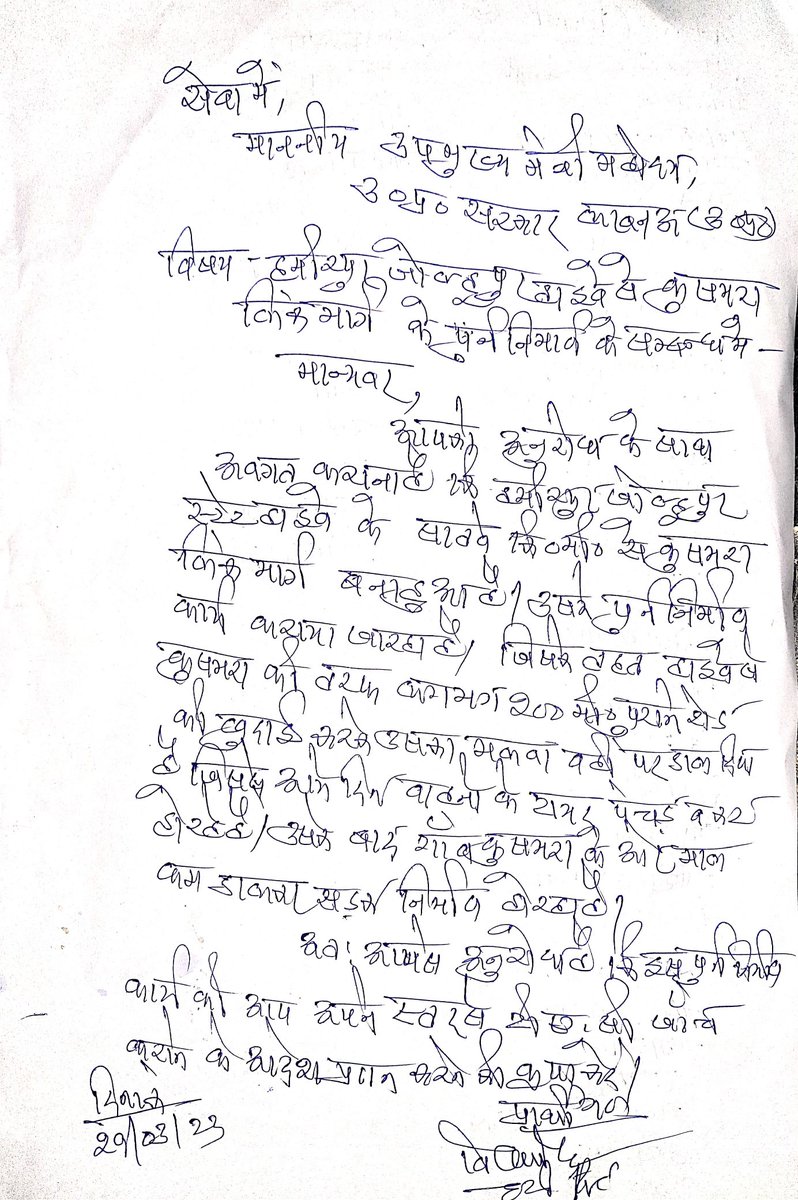 सेवा में,
माननीय उपमुख्य मंत्री महोदय,
उ०प्र० सरकार लखनऊ (उ०प्र०)
विषय - हमीरपुर जोल्हूपुर हाईवे से कुसमरा
लिंक मार्ग के पुर्न निर्माण के सम्बन्ध मे -
मान्यवर,
आपको अनुरोध के साथ
अवगत कराना है कि हमीरपुर जोल्हूपुर
स्टेट हाइवे के सातवे कि०मी० से कुसमरा
लिंक मार्ग बना हुआ है। उसमे पुर्न निर्माण
कार्य कराया जा रहा है। जिसके तहत हाईवे से
कुसमरा की तरफ लगभग 200 मी० पुराने रोड
की खुदाई करके उसका मलवा वही पर डाल दिया
है जिससे आये दिन वाहनो के टायर पंचर व
हो रहे है। उसके बाद गाँव कुसमरा के ओर माल
कम डालकर सड़क निर्माण हो रहा है।
अतः आपसे अनुरोध है कि इस पुर्न निर्माण
कार्य की आप अपने स्तर से जाँच
कराने के आदेश प्रदान करने की कृपा करे।
प्रार्थीगण
दिनांक
29/03/23